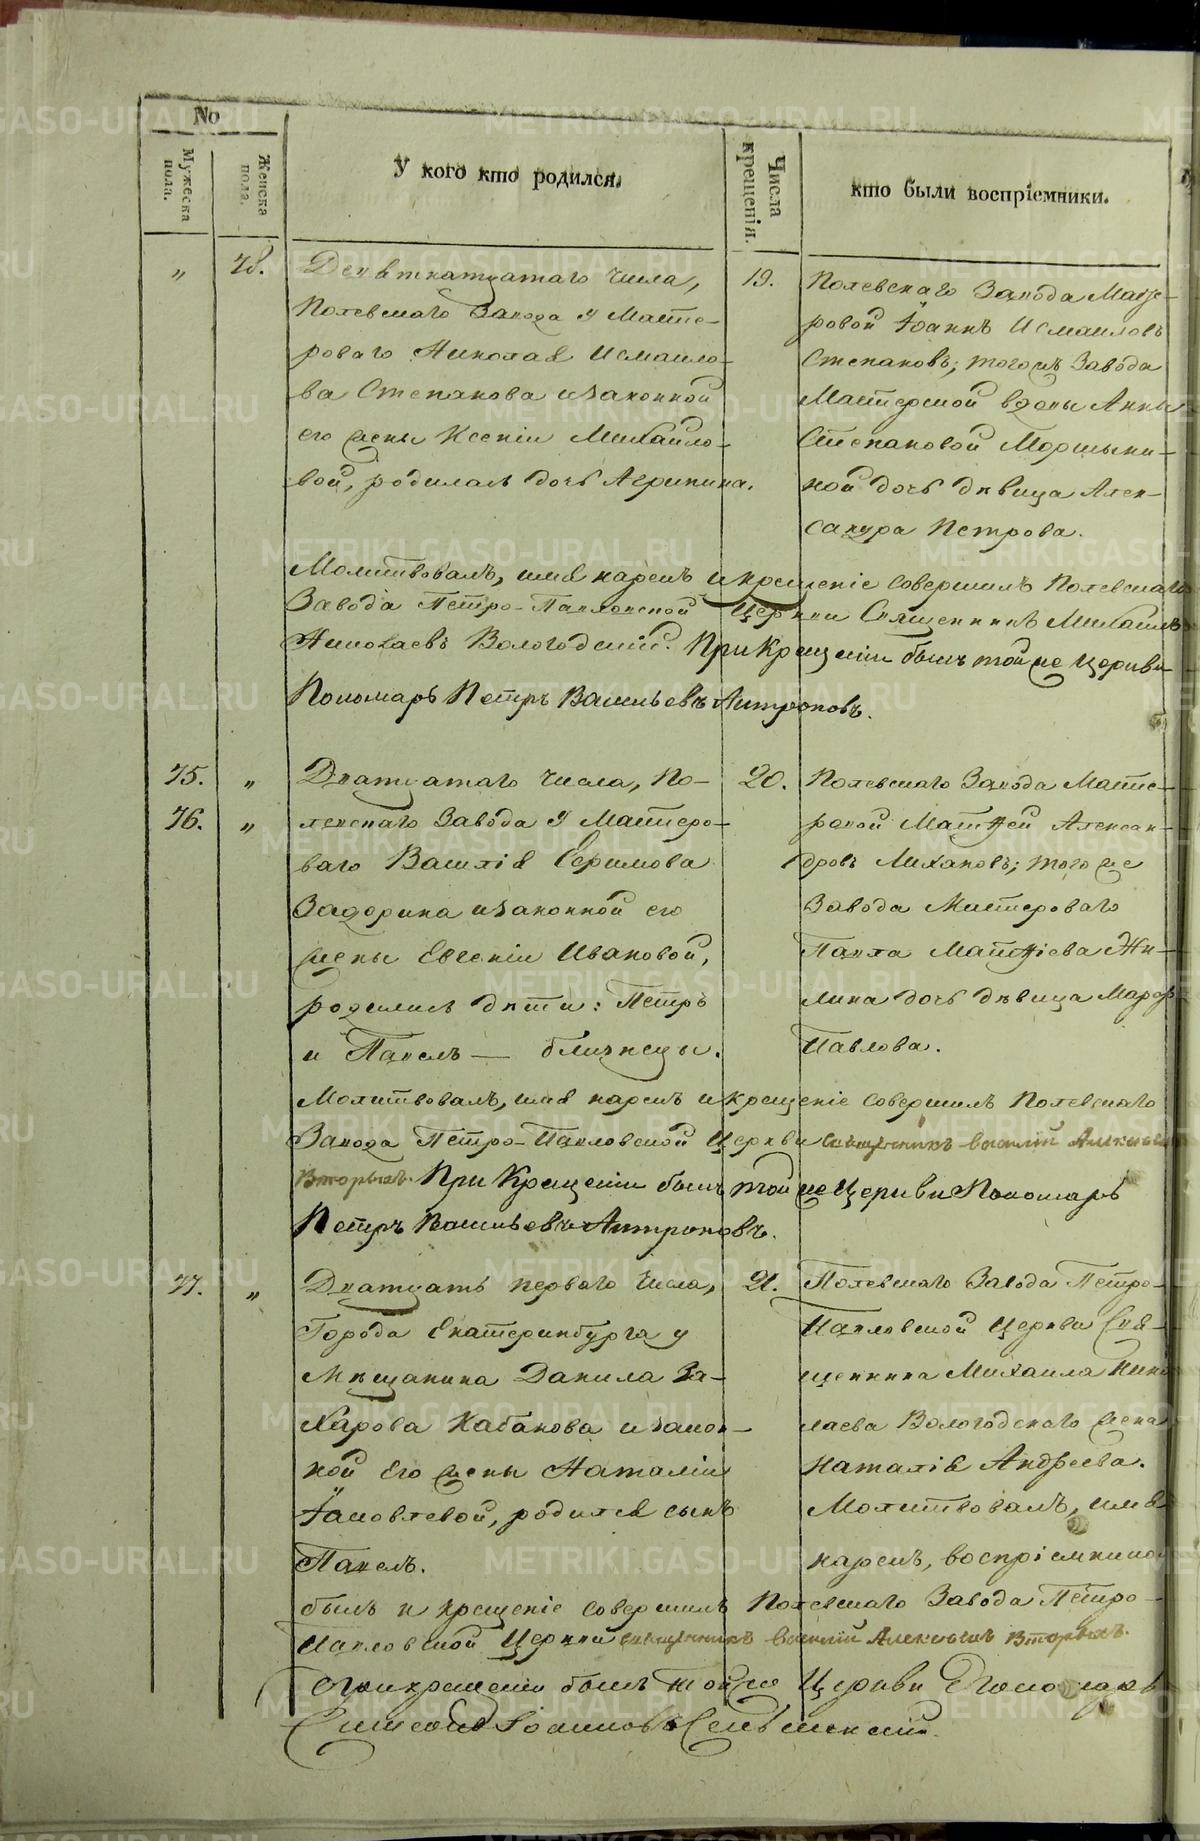 No
Мужеска пола.
Женска пола.
У кого кто родился.
Числа крещенія.
кто были воспріемники.
„ 78. Девятнатцатаго числа, 19.
Полевскаго Завода у Масте-
роваго Николая Исмаило-
ва Степанова и законной
его жены Ксеніи Михайло-
вой, родилась дочь Агрипина.
Полевскаго Завода Масте-
ровой Іоаннъ Исмаиловъ
Степановъ; того жъ Завода
Мастерской вдовы Анны
Степановой
ной дочь дѣвица Алек-
сандра Петрова.
Молитвовалъ, имя нарекъ и крещеніе совершилъ Полевскаго
Завода Петро-Павловской Церкви Священникъ Михаилъ
Николаевъ Вологодскій. При Крещеніи былъ той же Церкви
Пономарь Петръ Васильевъ Антроповъ.
75. „ Дватцатаго числа, По- 20.
76. „ левскаго Завода у Мастеро-
ваго Василія Ефимова
Задорина и законной его
жены Евгеніи Ивановой,
родились дѣти: Петръ
и Павелъ — близнецы.
Полевскаго Завода Масте-
ровой Матѳей Алексан-
дровъ того же
Завода Мастероваго
Павла Матѳіева Жи-
лина дочь дѣвица Марѳа
Павлова.
Молитвовалъ, имя нарекъ и крещеніе совершилъ Полевскаго
Завода Петро-Павловской Церкви священникъ Василій Алексѣевъ
Вторыхъ. При Крещеніи былъ той же Церкви Пономарь
Петръ Васильевъ Антроповъ.
77. „ Дватцать перваго числа, 21.
Города Екатеринбурга у
Мѣщанина Данила За-
харова Кабакова и закон-
ной его жены Наталіи
Іаковлевой, родился сынъ
Павелъ.
Полевскаго Завода Петро-
Павловской Церкви Свя-
щенника Михаила Нико
лаева Вологодскаго жена
Наталія Андреева.
Молитвовалъ, имя
нарекъ, воспріемникомъ
былъ и крещеніе совершилъ Полевскаго Завода Петро-
Павловской Церкви священникъ Василій Алексѣевъ Вторыхъ.
При крещеніи былъ той же Церкви Пономарь
Іоанновъ
METRIKI.GASO-URAL.RU